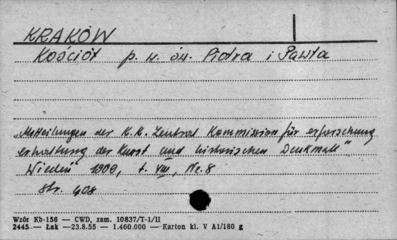 KRAKÓW
Kościół p. w. św. Piotra i Pawła
"Mitteilungen der K.K. Zentral Kommission für erforschung
erhaltung der Kunst und historischen Denkmale"
Wiedeń 1909, t. VIII, Nr. 8
str. 408
Wzór Kb-158 — CWD, zam. 10837/T-1/II
2445 — Łak — 23.8.55 — 1.400.000 — Karton kl. V A1/180 g